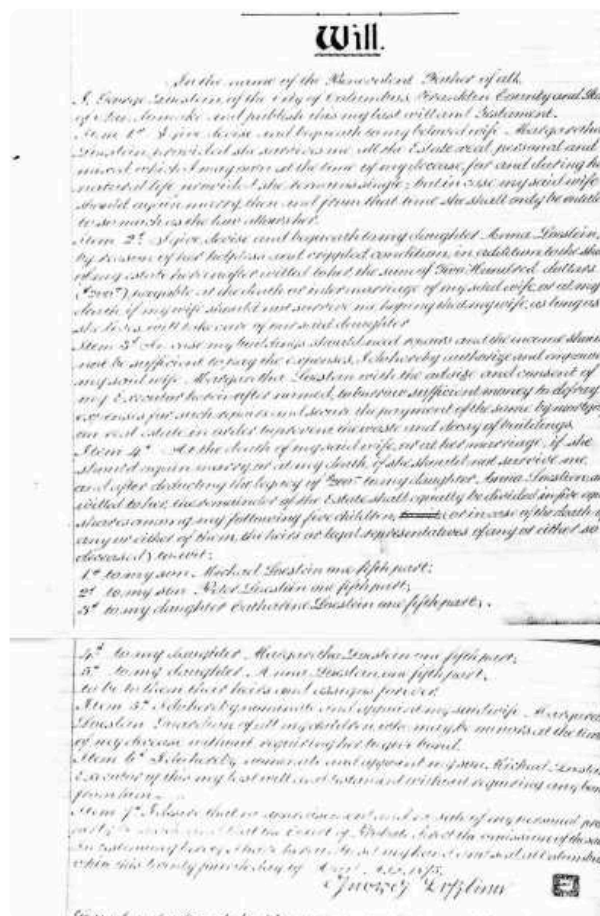 Will.
In the name of the Benevolent Father of all.
I, George Loestein, of the City of Columbus, Franklin County and Sta
of Ohio, do make and publish this my last will and Testament.
Item 1st I give devise and bequeath to my beloved wife Margaretha
Loestein, provided she survives me all the Estate real, personal and
mixed which I may own at the time of my decease, for and during he
natural life, provided she remains single; but in case my said wife
should again marry, then and from that time she shall only be entitle
to so much as the law allows her.
Item 2d I give devise and bequeath to my daughter Anna Loestein,
by reason of her helpless and crippled condition, in addition to the sha
of my estate hereinafter willed to her the sum of Two Hundred dollars
($200) payable at the death or intermarriage of my said wife, or at my
death, if my wife should not survive me hoping that my wife, as long as
she lives, will take care of our said daughter
Item 3d In case my buildings should need repairs and the income shoul
not be sufficient to pay the expenses, I do hereby authorize and empower
my said wife Margaretha Loestein with the advise and consent of
my Executor herein after named, to borrow sufficient money to defray
expenses for such repairs and secure the payment of the same by mortga
on real estate in order to prevent the waste and decay of buildings.
Item 4th At the death of my said wife, or at her marriage, if she
should again marry, or at my death, if she should not survive me,
and after deducting the legacy of $200 to my daughter Anna Loestein as
willed to her, the remainder of the Estate shall equally be divided in five equ
shares among my following five children, (or in case of the death of
any or either of them, the heirs or legal representatives of any or either so
deceased) to wit:
1st to my son Michael Loestein one fifth part;
2d to my son Peter Loestein one fifth part;
3d to my daughter Catharine Loestein one fifth part;
4th to my daughter Margaretha Loestein one fifth part;
5th to my daughter Anna Loestein one fifth part,
to be to them their heirs and assigns forever.
Item 5th I do hereby nominate and appoint my said wife Margare
Loestein Guardian of all my children, who may be minors at the time
of my decease without requiring her to give bond.
Item 6th I do hereby nominate and appoint my son Michael Loestei
Executor of this my last will and testament without requiring any bon
from him.
Item 7th I desire that no appraisement and no sale of my personal pro
perty be made and that the Court of Probate direct the omission of the sa
In testimony hereof I have hereunto set my hand and seal at Columbus
Ohio this twenty day of 1875.